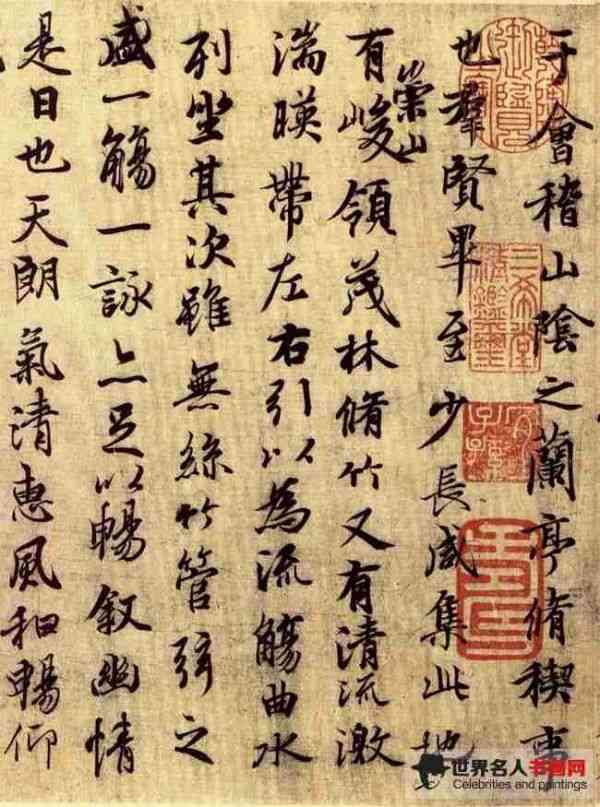 于會稽山陰之蘭亭脩稧事
也羣賢畢至少長咸集此地
有崇山峻領茂林脩竹又有清流激
湍暎帶左右引以為流觴曲水
列坐其次雖無絲竹管弦之
盛一觴一詠亦足以暢叙幽情
是日也天朗氣清惠風和暢仰
三希堂精鑑璽
宜子孫
世界名人书画网
Celebrities and paintings